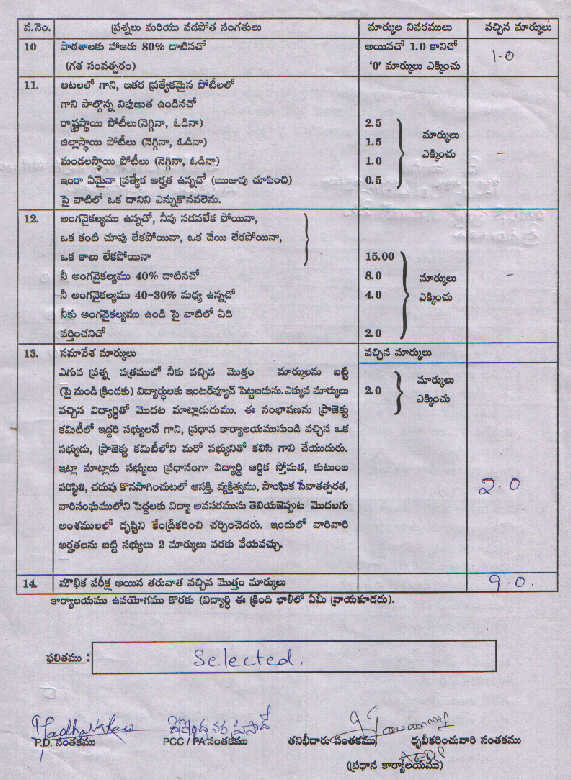 ప.నెం. ప్రశ్నలు మరియు వివరోత సంగతులు మార్కుల వివరములు వచ్చిన మార్కులు
10 పాఠశాలకు హాజరు 80% దాటినచో అయినచో 1.0 కానిచో 1-0
(గత సంవత్సరం) '0' మార్కులు ఎక్కించు
11. ఆటలలో గాని, ఇతర ప్రత్యేకమైన పోటీలలో
గాని పాల్గొన్న నిపుణుత ఉండినచో
రాష్ట్రస్థాయి పోటీలు(నెగ్గినా, ఓడినా) 2.5 మార్కులు
జిల్లాస్థాయి పోటీలు (నెగ్గినా, ఓడినా) 1.5 ఎక్కించు
మండలస్థాయి పోటీలు (నెగ్గినా, ఓడినా) 1.0
ఇందా ఏమైనా ప్రత్యేక అర్హత ఉన్నచో (ఋజువు చూపించి) 0.5
పై వాటిలో ఒక దానిని ఎన్నుకొనవలెను.
12. అంగవైకల్యము ఉన్నచో, నీవు నడవలేక పోయినా,
ఒక కంటి చూపు లేకపోయినా, ఒక చేయి లేకపోయినా,
ఒక కాలు లేకపోయినా 15.00
నీ అంగవైకల్యము 40% దాటినచో 8.0 మార్కులు
నీ అంగవైకల్యము 40-30% మధ్య ఉన్నచో 4.0 ఎక్కించు
నీకు అంగవైకల్యము ఉండి పై వాటిలో ఏది
వర్తించనిచో 2.0
13. సమావేశ మార్కులు వచ్చిన మార్కులు
ఎగువ ప్రశ్న పత్రములో నీకు వచ్చిన మొత్తం మార్కులను బట్టి మార్కులు
(పై నుండి క్రిందకు) విద్యార్థులకు ఇంటర్వ్యూన్ పెట్టబడును.ఎక్కువ మార్కులు 2.0 ఎక్కించు
వచ్చిన విద్యార్థితో మొదట మాట్లాడుదుము. ఈ సంభాషణను ప్రాజెక్టు
కమిటీలో ఇద్దరి సభ్యులచే గాని, ప్రధాన కార్యాలయమునుండి వచ్చిన ఒక
సభ్యుడు, ప్రాజెక్టు కమిటీలోని మరో సభ్యునితో కలిసి గాని చేయుదురు.
ఇట్లా మాట్లాడు సభ్యులు ప్రధానంగా విద్యార్థి ఆర్థిక స్తోమత, కుటుంబ
పరిస్థితి, చదువు కొనసాగించుటలో ఆసక్తి, వ్యక్తిత్వము, సాంఘిక సేవాతత్పరత, 2.0
వారిసంఘములోని పెద్దలకు విద్యా అవసరమును తెలియజెప్పుట మొదలగు
అంశములలో దృష్టిని కేంద్రీకరించి చర్చించెదరు. ఇందులో వారివారి
అర్హతలను బట్టి సభ్యులు 2 మార్కులు వరకు వేయవచ్చు.
14. మౌఖిక పరీక్ష అయిన తరువాత వచ్చిన మొత్తం మార్కులు 9.0.
కార్యాలయము ఉపయోగము కొరకు (విద్యార్థి ఈ క్రింది ఖాళీలో ఏమీ వ్రాయకూడదు).
ఫలితము : Selected.
P.D. సంతకము PCC / PA సంతకము తనిఖీదారు సంతకము ధృవీకరించువారి సంతకము
(ప్రధాన కార్యాలయము)